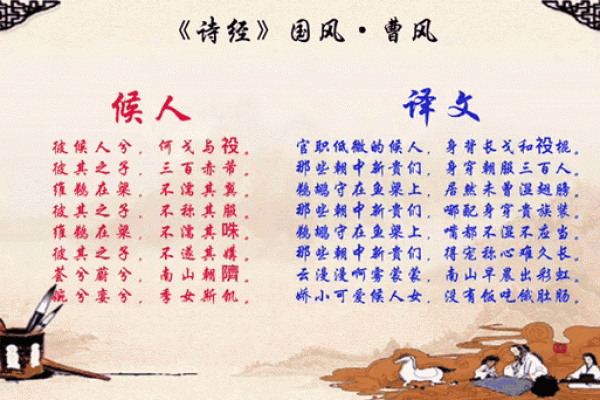 《诗经》国风·曹风
候人
彼候人兮，何戈与祋。
彼其之子，三百赤芾。
维鹈在梁，不濡其翼。
彼其之子，不称其服。
维鹈在梁，不濡其咮。
彼其之子，不遂其媾。
荟兮蔚兮，南山朝隮。
婉兮娈兮，季女斯饥。
译文
官职低微的候人，身背长戈和祋棍。
那些朝中新贵们，身穿朝服三百人。
鹈鹕守在鱼梁上，居然未曾湿翅膀。
那些朝中新贵们，哪配身穿贵族装。
鹈鹕守在鱼梁上，嘴都不湿不应当。
那些朝中新贵们，得宠称心难久长。
云漫漫啊雾蒙蒙，南山早晨出彩虹。
娇小可爱候人女，没有饭吃饿肚肠。